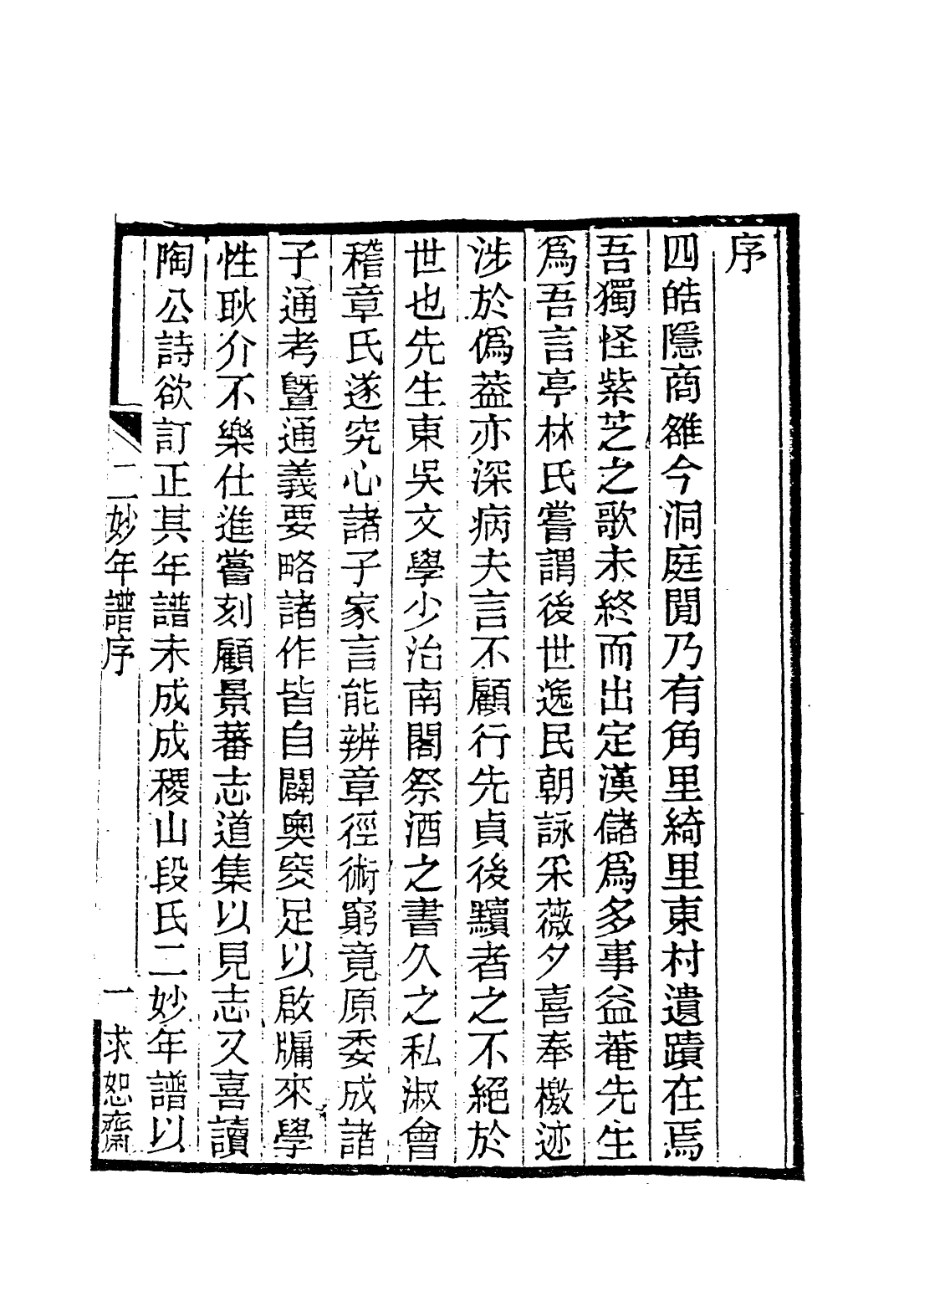 序
四皓隱商雒今洞庭閒乃有角里綺里東村遺蹟在焉
吾獨怪紫芝之歌未終而出定漢儲爲多事益菴先生
爲吾言亭林氏嘗謂後世逸民朝詠采薇夕喜奉檄迹
涉於僞葢亦深病夫言不顧行先貞後黷者之不絕於
世也先生東吳文學少治南閣祭酒之書久之私淑會
稽章氏遂究心諸子家言能辨章徑術窮竟原委成諸
子通考曁通義要略諸作皆自闢奧窔足以啟牖來學
性耿介不樂仕進嘗刻顧景蕃志道集以見志又喜讀
陶公詩欲訂正其年譜未成成稷山段氏二妙年譜以
二妙年譜序
一
求恕齋